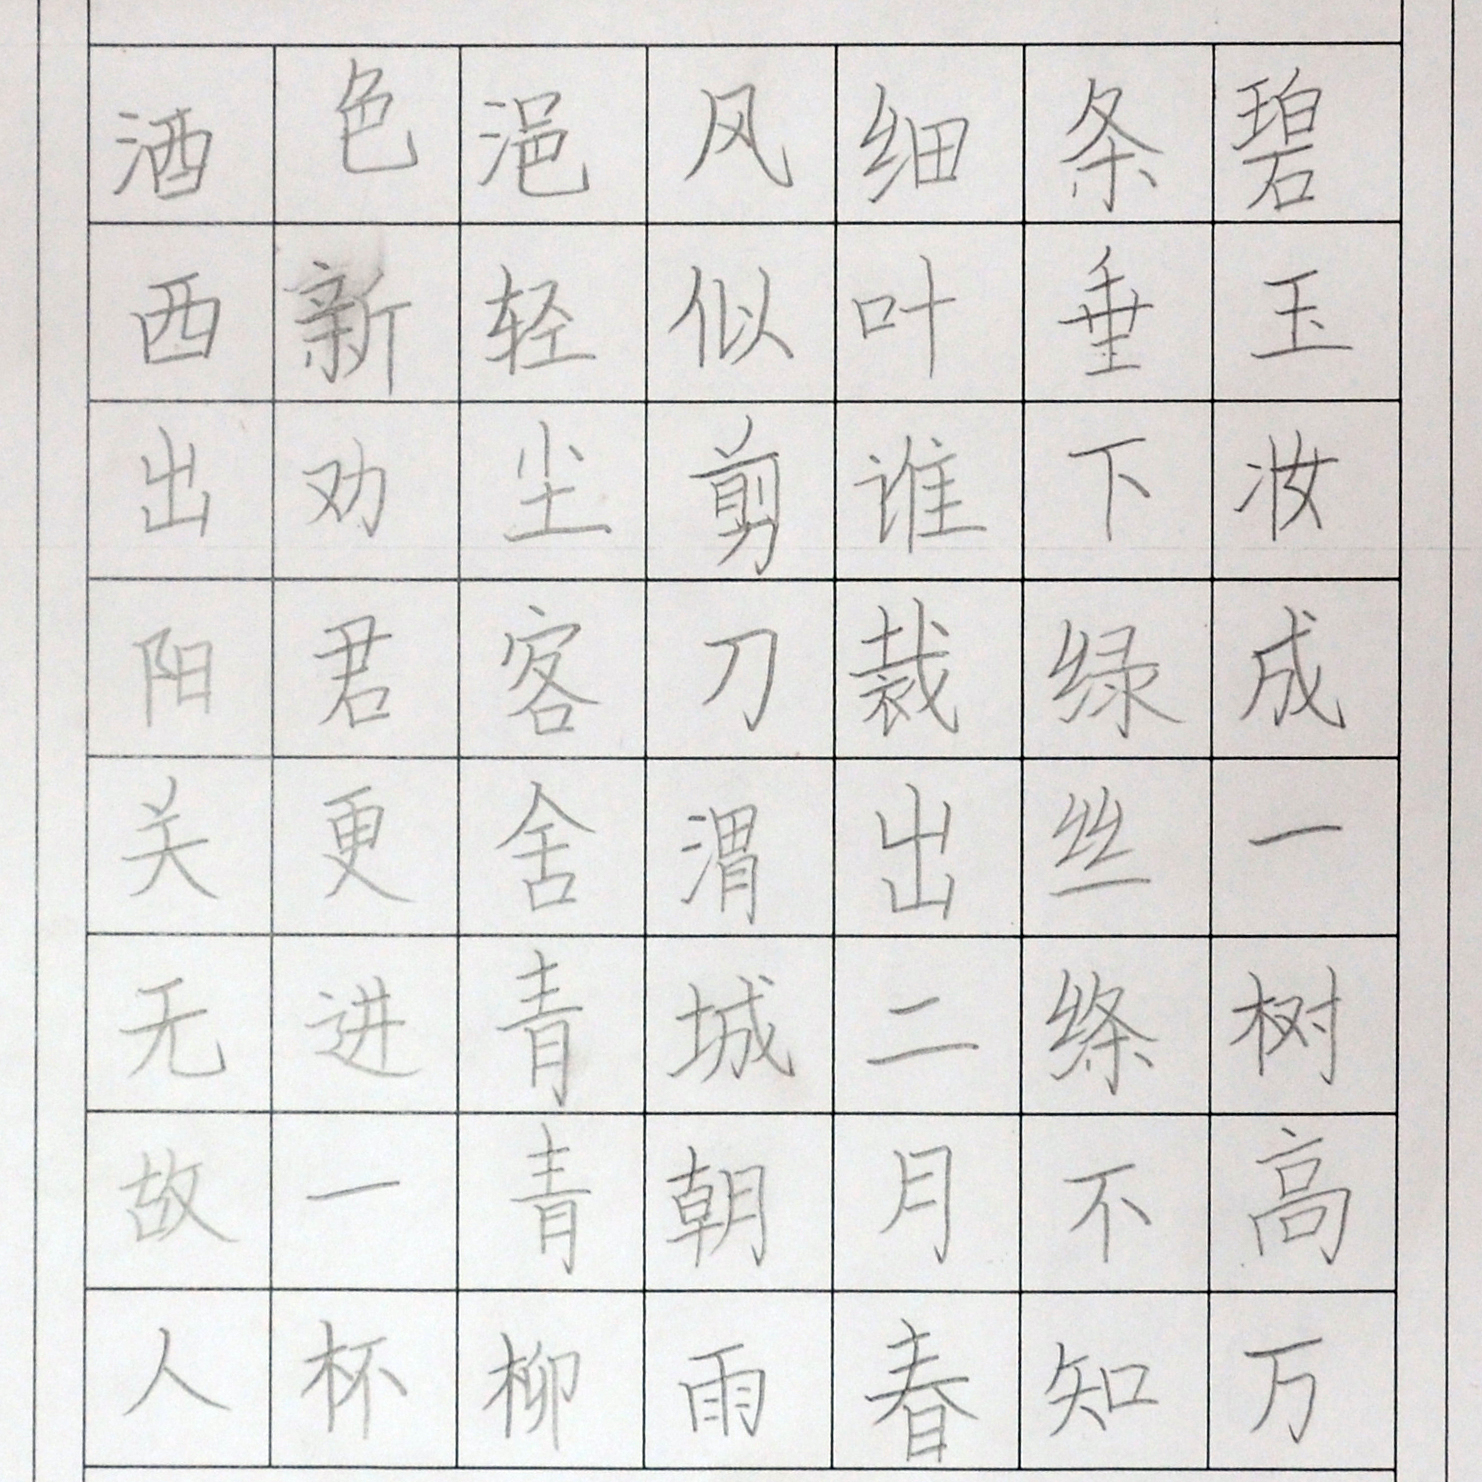 碧玉妆成一树高万
条垂下绿丝绦不知
细叶谁裁出二月春
风似剪刀渭城朝雨
浥轻尘客舍青青柳
色新劝君更进一杯
酒西出阳关无故人